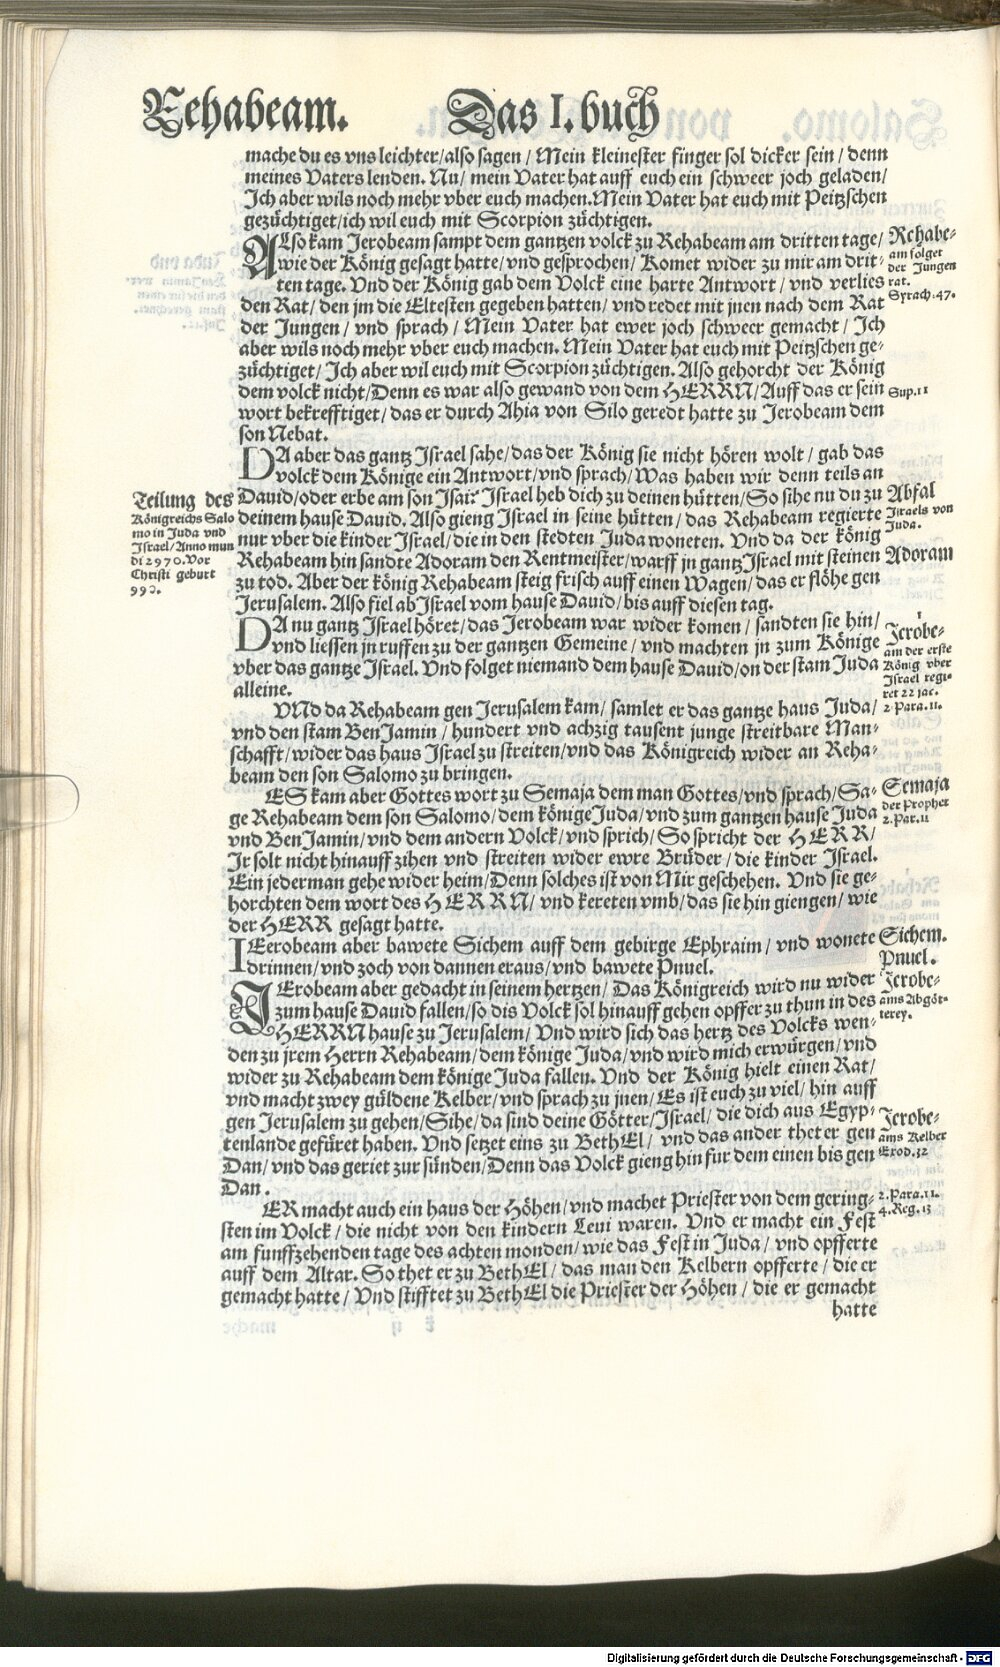 Rehabeam. Das I. buch
mache du es vns leichter / also sagen / Mein kleinester finger sol dicker sein / denn
meines Vaters lenden. Nu / mein Vater hat auff euch ein schweer joch geladen /
Ich aber wils noch mehr vber euch machen. Mein Vater hat euch mit Peitzschen
gezüchtiget / ich wil euch mit Scorpion züchtigen.
ALso kam Jerobeam sampt dem gantzen volck zu Rehabeam am dritten tage /
wie der König gesagt hatte / vnd gesprochen / Komet wider zu mir am drit-
ten tage. Vnd der König gab dem Volck eine harte Antwort / vnd verlies
den Rat / den jm die Eltesten gegeben hatten / vnd redet mit jnen nach dem Rat
der Jungen / vnd sprach / Mein Vater hat ewer joch schweer gemacht / Ich
aber wils noch mehr vber euch machen. Mein Vater hat euch mit Peitzschen ge-
züchtiget / Ich aber wil euch mit Scorpion züchtigen. Also gehorcht der König
dem volck nicht / Denn es war also gewand von dem HERRN / Auff das er sein
wort bekrefftiget / das er durch Ahia von Silo geredt hatte zu Jerobeam dem
son Nebat.
Rehabe-
am folget
der Jungen
rat.
Syrach. 47.
Sup. 11
DA aber das gantz Jsrael sahe / das der König sie nicht hören wolt / gab das
volck dem Könige ein Antwort / vnd sprach / Was haben wir denn teils an
Dauid / oder erbe am son Isai? Israel heb dich zu deinen hütten / So sihe nu du zu
deinem hause Dauid. Also gieng Israel in seine hütten / das Rehabeam regierte
nur vber die kinder Israel / die in den stedten Juda woneten. Vnd da der könig
Rehabeam hin sandte Adoram den Rentmeister / warff jn gantz Israel mit steinen
zu tod. Aber der könig Rehabeam steig frisch auff einen Wagen / das er flöhe gen
Jerusalem. Also fiel ab Israel vom hause Dauid / bis auff diesen tag.
Teilung des
Königreichs Salo
mo in Juda vnd
Israel / Anno mun
di 2970. Vor
Christi geburt
Abfal
Israels von
Juda.
Adoram
DA nu gantz Israel höret / das Jerobeam war wider komen / sandten sie hin /
vnd liessen jn ruffen zu der gantzen Gemeine / vnd machten jn zum Könige
vber das gantze Israel. Vnd folget niemand dem hause Dauid / on der stam Juda
alleine.
1
Jerobe-
am der erste
König vber
Israel regi-
ret 22 jar.
VNd da Rehabeam gen Jerusalem kam / samlet er das gantze haus Juda /
vnd den stam BenJamin / hundert vnd achzig tausent junge streitbare Man-
schafft / wider das haus Israel zu streiten / vnd das Königreich wider an Reha-
beam den son Salomo zu bringen.
2. Para. 11.
ES kam aber Gottes wort zu Semaja dem man Gottes / vnd sprach / Sa-
ge Rehabeam dem son Salomo / dem könige Juda / vnd zum gantzen hause Juda
vnd BenJamin / vnd dem andern Volck / vnd sprich / So spricht der HERR /
Ir solt nicht hinauff zihen vnd streiten wider ewre Brüder / die kinder Israel.
Ein jederman gehe wider heim / Denn solches ist von Mir geschehen. Vnd sie ge-
horchten dem wort des HERRN / vnd kereten vmb / das sie hin giengen / wie
der HERR gesagt hatte.
Semaja
der Prophet
2. Par. 11
IErobeam aber bawete Sichem auff dem gebirge Ephraim / vnd wonete
drinnen / vnd zoch von dannen eraus / vnd bawete Pnuel.
Sichem.
Pnuel.
JErobeam aber gedacht in seinem hertzen / Das Königreich wird nu wider
zum hause Dauid fallen / so dis Volck sol hinauff gehen opffer zu thun in des
HERRN hause zu Jerusalem / Vnd wird sich das hertz des Volcks wen-
den zu jrem Herrn Rehabeam / dem könige Juda / vnd wird mich erwürgen / vnd
wider zu Rehabeam dem könige Juda fallen. Vnd der König hielt einen Rat /
vnd macht zwey güldene Kelber / vnd sprach zu jnen / Es ist euch zu viel / hin auff
gen Jerusalem zu gehen / Sihe / da sind deine Götter / Israel / die dich aus Egyp-
tenlande gefüret haben. Vnd setzet eins zu BethEl / vnd das ander thet er gen
Dan / vnd das geriet zur sünden / Denn das Volck gieng hin fur dem einen bis gen
Dan.
Jerobe-
ams Abgöt-
terey.
Jerobe-
ams Kelber
Exod. 32
ER macht auch ein haus der Höhen / vnd machet Priester von dem gering-
sten im Volck / die nicht von den kindern Leui waren. Vnd er macht ein Fest
am funffzehenden tage des achten monden / wie das Fest in Juda / vnd opfferte
auff dem Altar. So thet er zu BethEl / das man den Kelbern opfferte / die er
gemacht hatte / Vnd stifftet zu BethEl die Priester der Höhen / die er gemacht
hatte
2. Para. 11.
4. Reg. 13
Digitalisierung gefördert durch die Deutsche Forschungsgemeinschaft - DFG